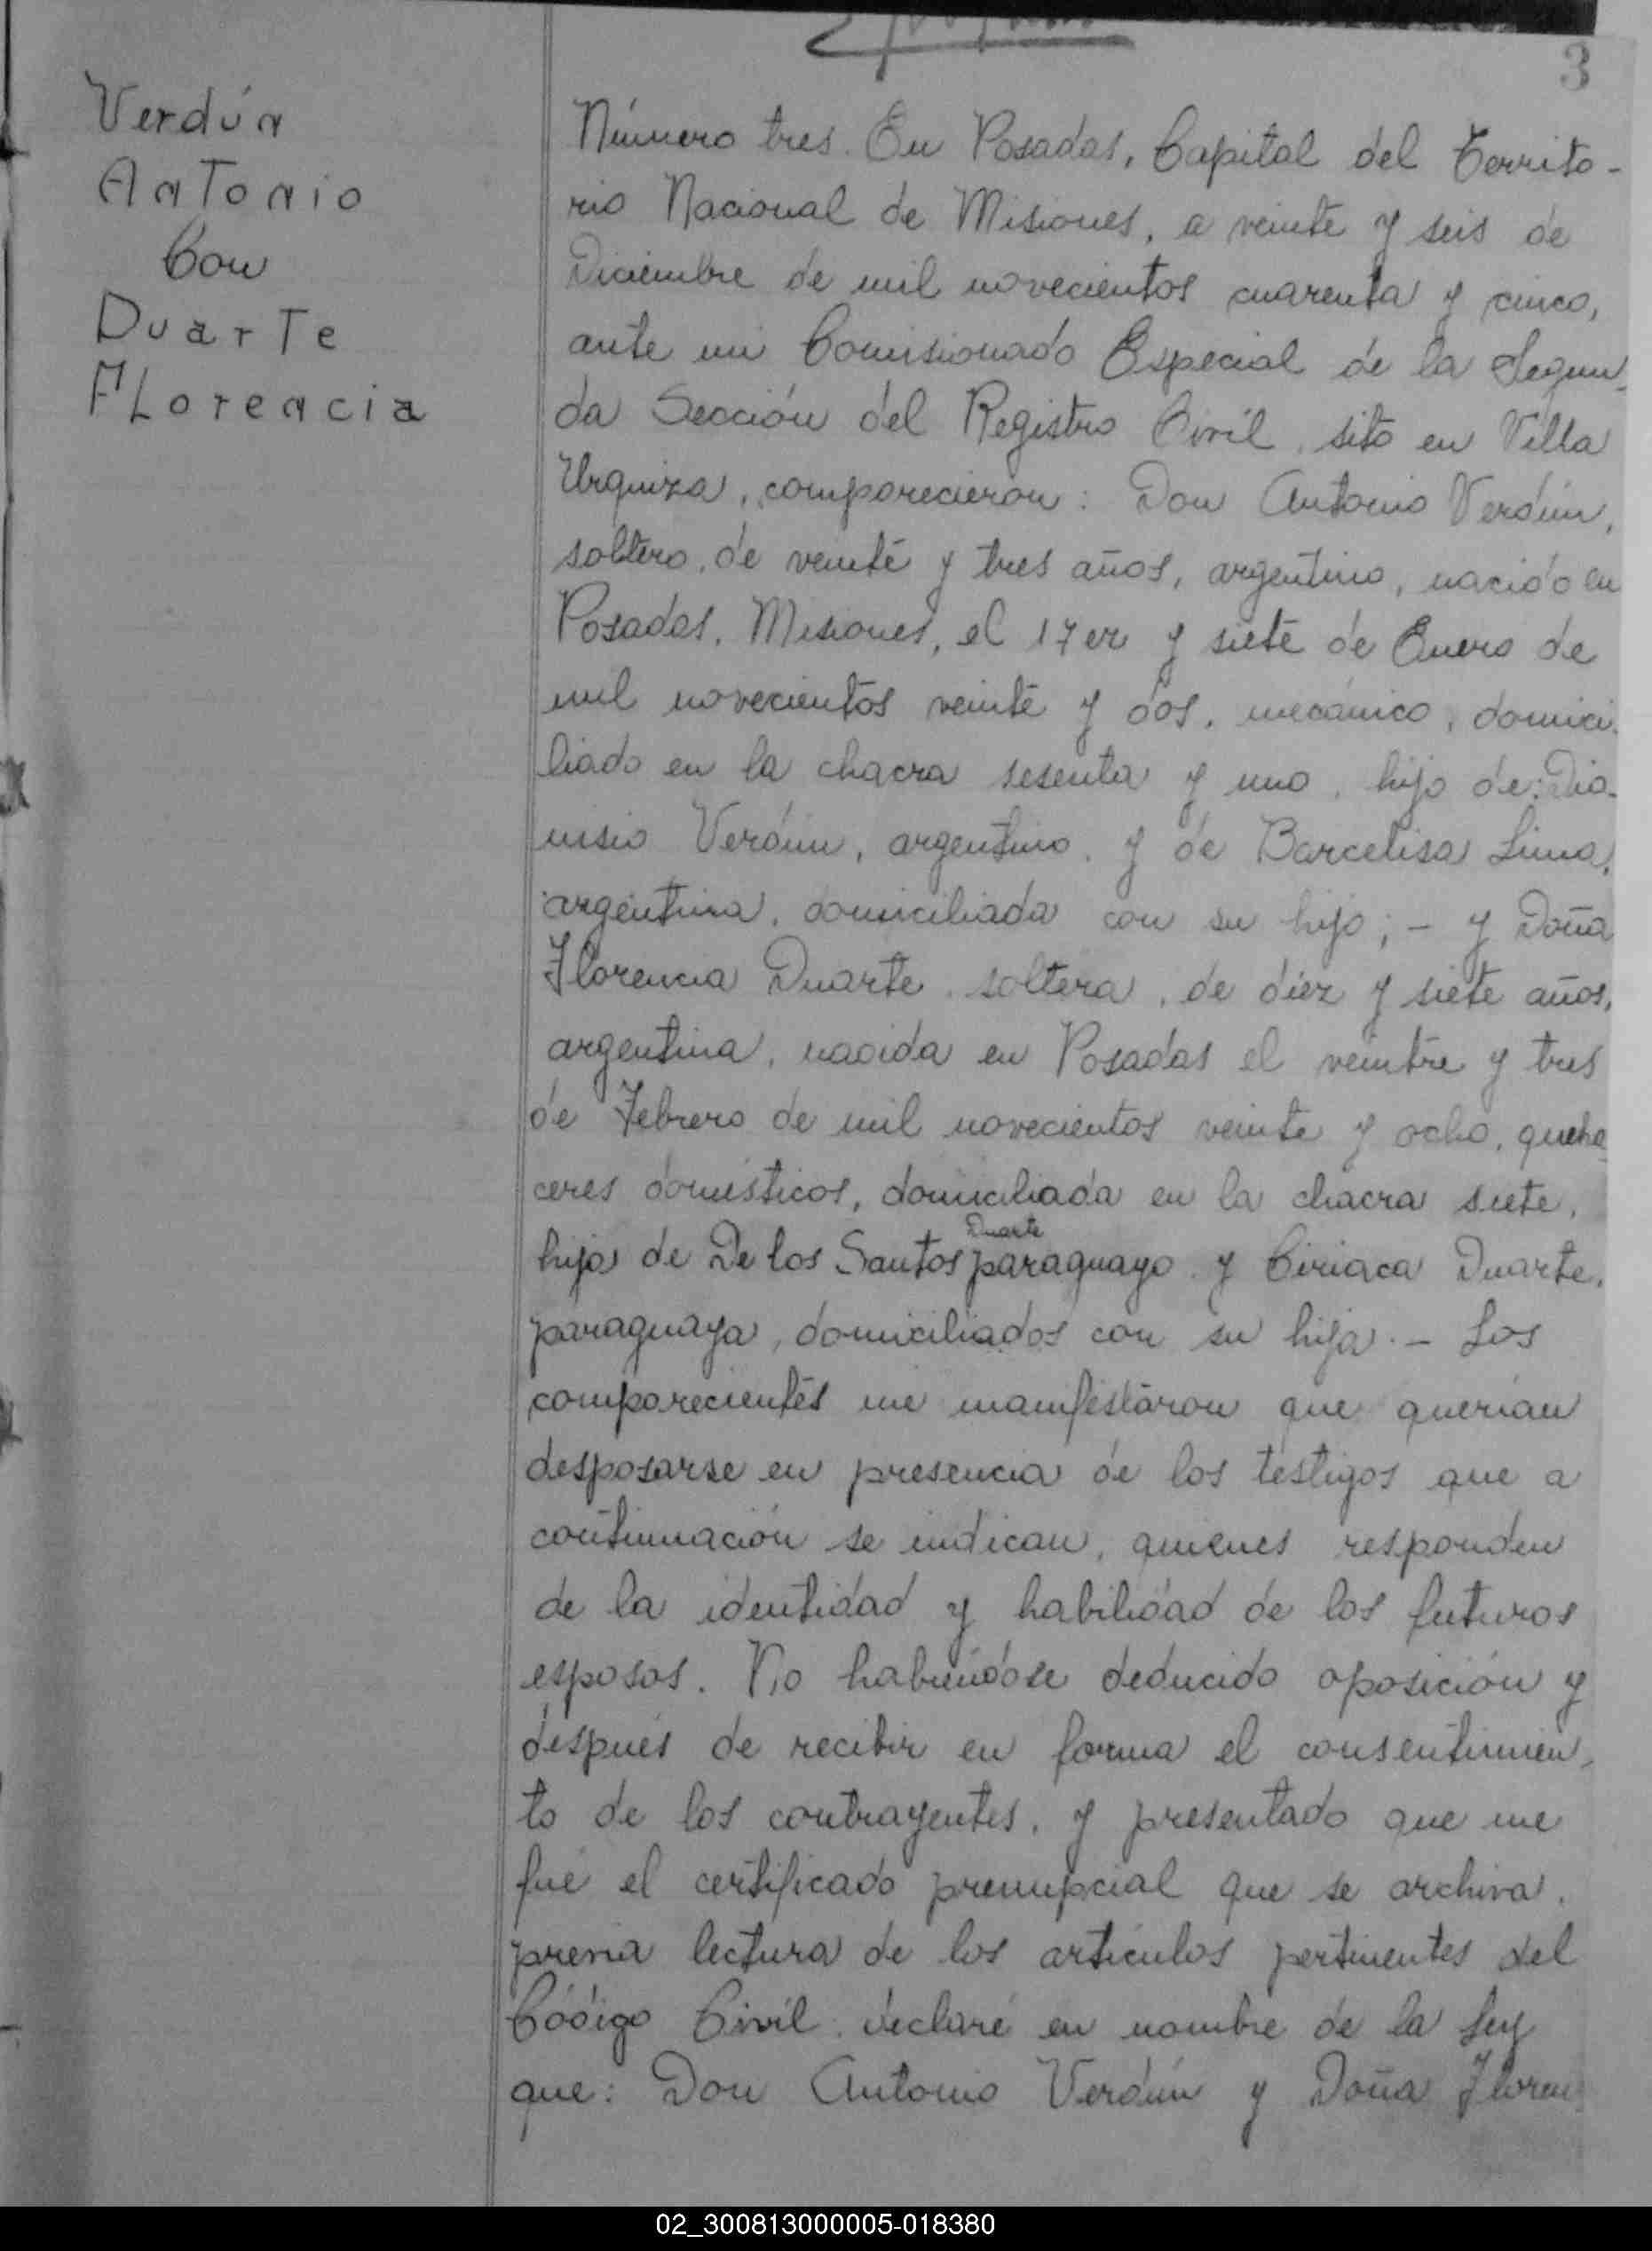 3
Verdún
Antonio
Con
Duarte
Florencia
Número tres. En Posadas, Capital del Territo-
rio Nacional de Misiones, a veinte y seis de
Diciembre de mil novecientos cuarenta y cinco,
ante mi Comisionado Especial de la Segun-
da Sección del Registro Civil, sito en Villa
Urquiza, comparecieron: Don Antonio Verdún,
soltero, de veinte y tres años, argentino, nacido en
Posadas, Misiones, el y siete de Enero de
mil novecientos veinte y dos, mecánico, domici-
liado en la chacra sesenta y uno, hijo de: Dio-
nisio Verdún, argentino, y de Barcelisa Lima,
argentina, domiciliada con su hijo; - y Doña
Florencia Duarte, soltera, de diez y siete años,
argentina, nacida en Posadas el veintre y tres
de Febrero de mil novecientos veinte y ocho, queha-
ceres domésticos, domiciliada en la chacra siete,
Duarte
hija de De los Santos paraguayo y Ciriaca Duarte,
paraguaya, domiciliados con su hija. - Los
comparecientes me manifestaron que querían
desposarse en presencia de los testigos que a
continuación se indican, quienes responden
de la identidad y habilidad de los futuros
esposos. No habiéndose deducido oposición y
después de recibir en forma el consentimien-
to de los contrayentes, y presentado que me
fué el certificado prenupcial que se archiva,
previa lectura de los artículos pertinentes del
Código Civil, declaré en nombre de la Ley
que: Don Antonio Verdún y Doña Floren
02_300813000005-018380